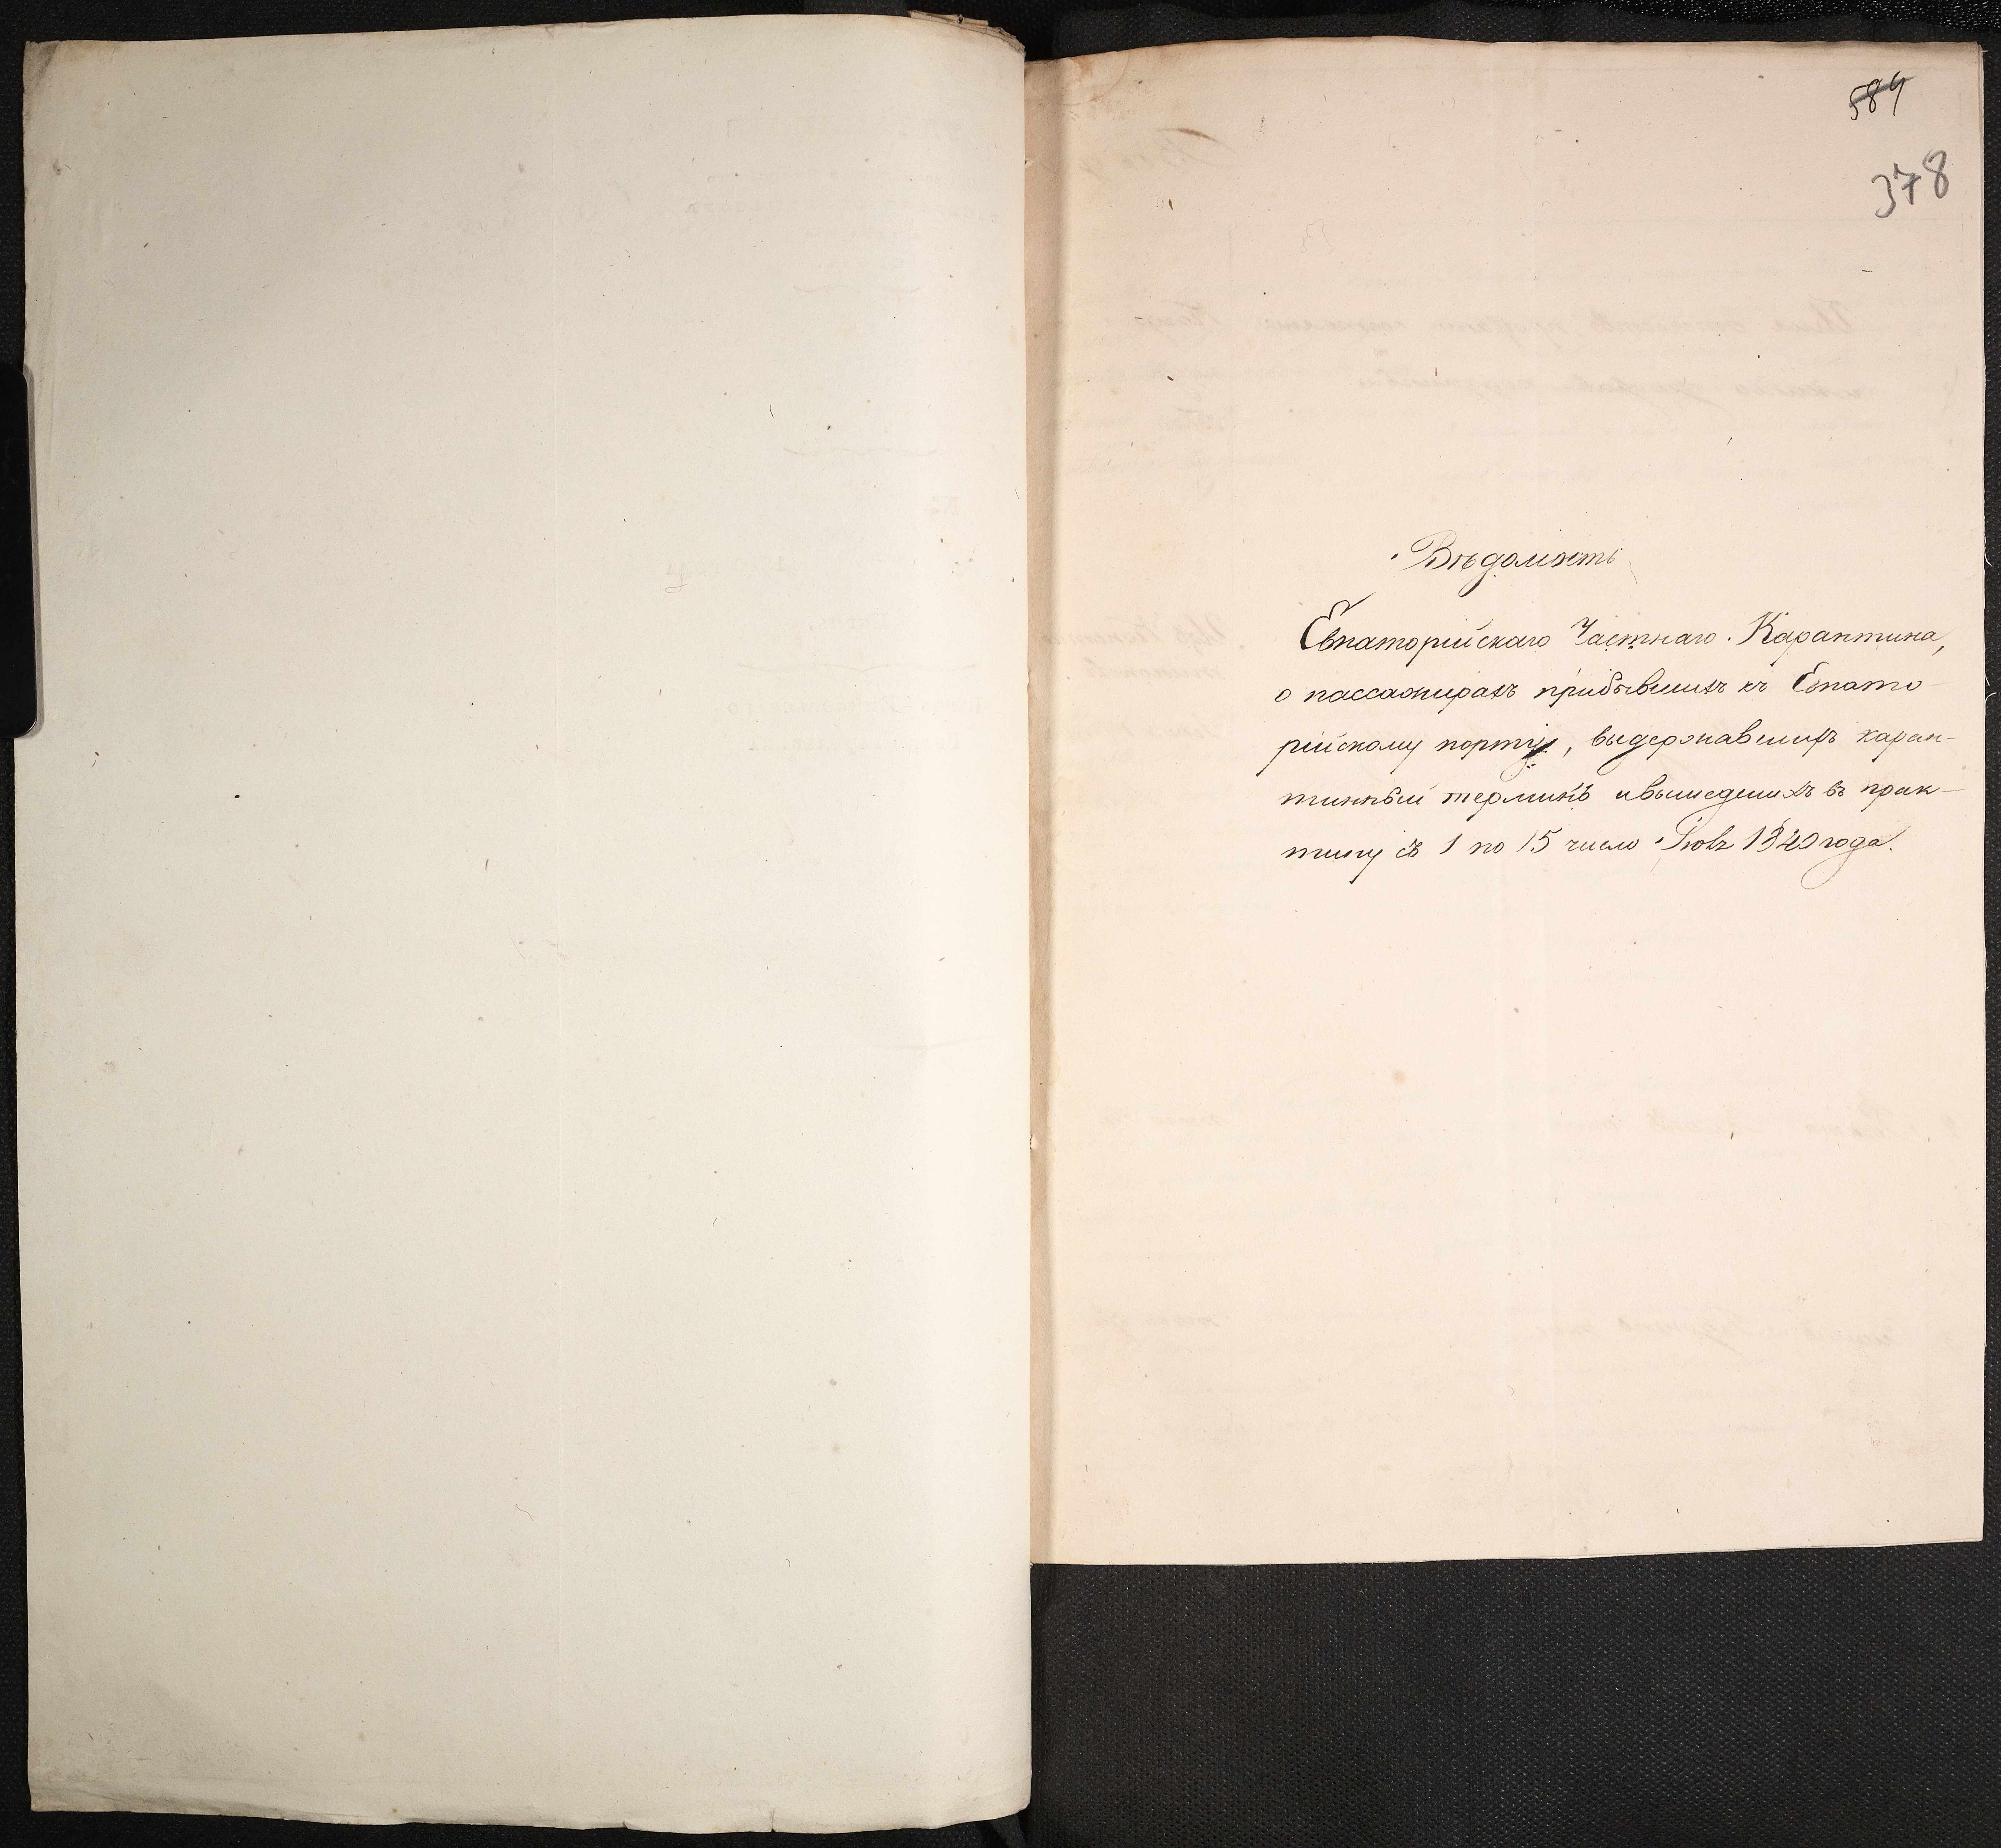 584
378
Вѣдомость
Евпаторійскаго Частнаго Карантина,
о пассажирахъ прибывшихъ къ Евпато-
рійскому порту, выдержавшихъ каран-
тинный терминъ и вышедшихъ въ прак-
тику съ 1 по 15 число 1840 года.